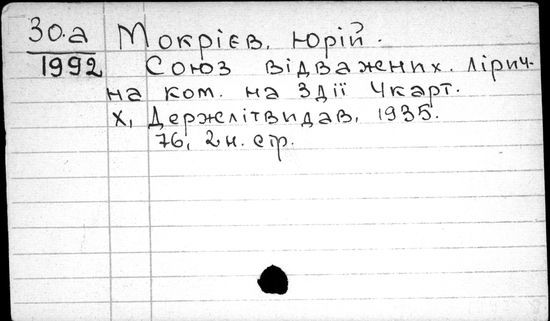 30.а Мокрієв, Юрій.
1992 Союз відважених. Лірич-
на ком. на 3 дії 4 карт.
Х, Держлітвидав, 1935.
76, 2 н. стр.